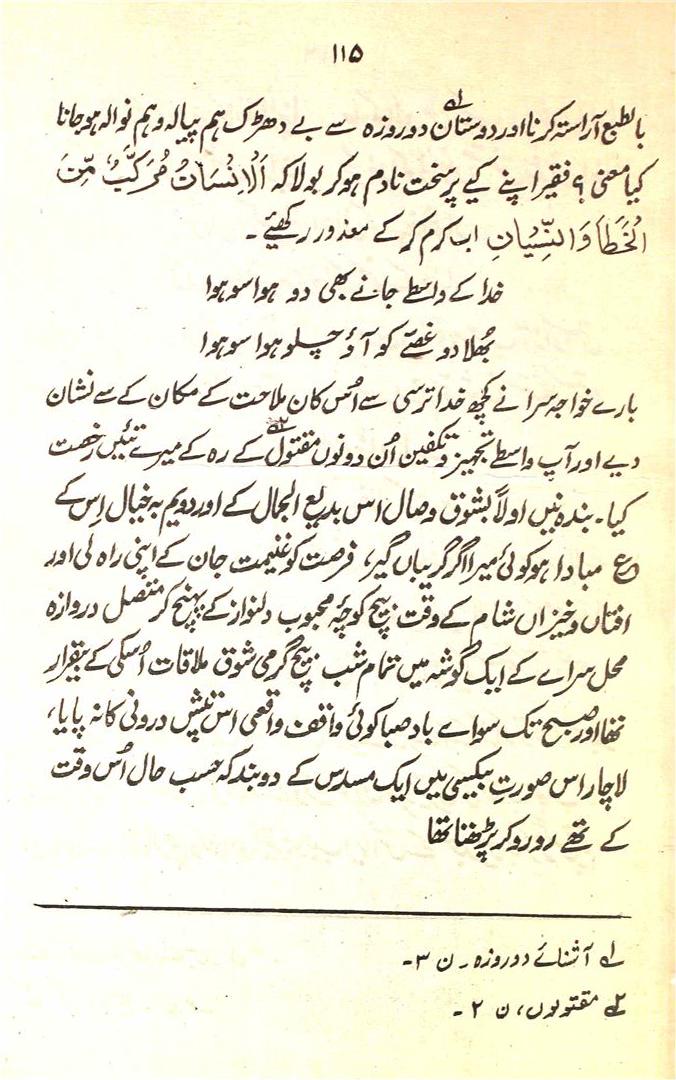 ۱۱۵
بالطبع آراستہ کرنا اور دوستان۱ دو روزہ سے بے دھڑک ہم پیالہ و ہم نوالہ ہو جانا
کیا معنی ؟ فقیر اپنے کیے پر سخت نادم ہو کر بولا کہ اَلْاِنْسَانُ مُرَکَّبٌ مِّنَ
الْخَطَاَ وَالنِّسْیَانِ اب کرم کر کے معذور رکھیئے۔
خدا کے واسطے جانے بھی دو ہوا سو ہوا
بُھلا دو غصّے کو آؤ چلو ہوا سو ہوا
بارے خواجہ سرا نے کچھ خدا ترسی سے اُس کان ملاحت کے مکان کے سے نشان
دیے اور آپ واسطے تجہیز و تکفین اُن دونوں مقتول۲ کے رہ کے میرے تئیں رخصت
کیا۔ بندہ نیں اولاً بشوق وصال اس بدیع الجمال کے اور دویم بہ خیال اِس کے
ع مبادا ہو کوئی میرا اگر گریباں گیر، فرصت کو غنیمت جان کے اپنی راہ لی اور
افتاں و خیزاں شام کے وقت بیچ کوچۂ محبوب دلنواز کے پہنچ کر متصل دروازہ
محل سراے کے ایک گوشہ میں تمام شب بیچ گرمی شوق ملاقات اُسکی کے بیقرار
تھا اور صبح تک سواے باد صبا کوئی واقف واقعی اس تپش درونی کا نہ پایا،
لاچار اس صورتِ بیکیسی میں ایک مسدس کے دو بند کہ حسب حال اُس وقت
کے تھے رو رو کر پڑھتا تھا
۱ آشنائے دو روزہ۔ ن ۳۔
۲ مقتولوں، ن ۲۔